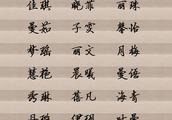 佳琪 晓菲 丽珠
曼茹 子雯 馨怡
梦瑶 丽文 月梅
慧艳 晨曦 曼语
秀琳 蓓凡 海青